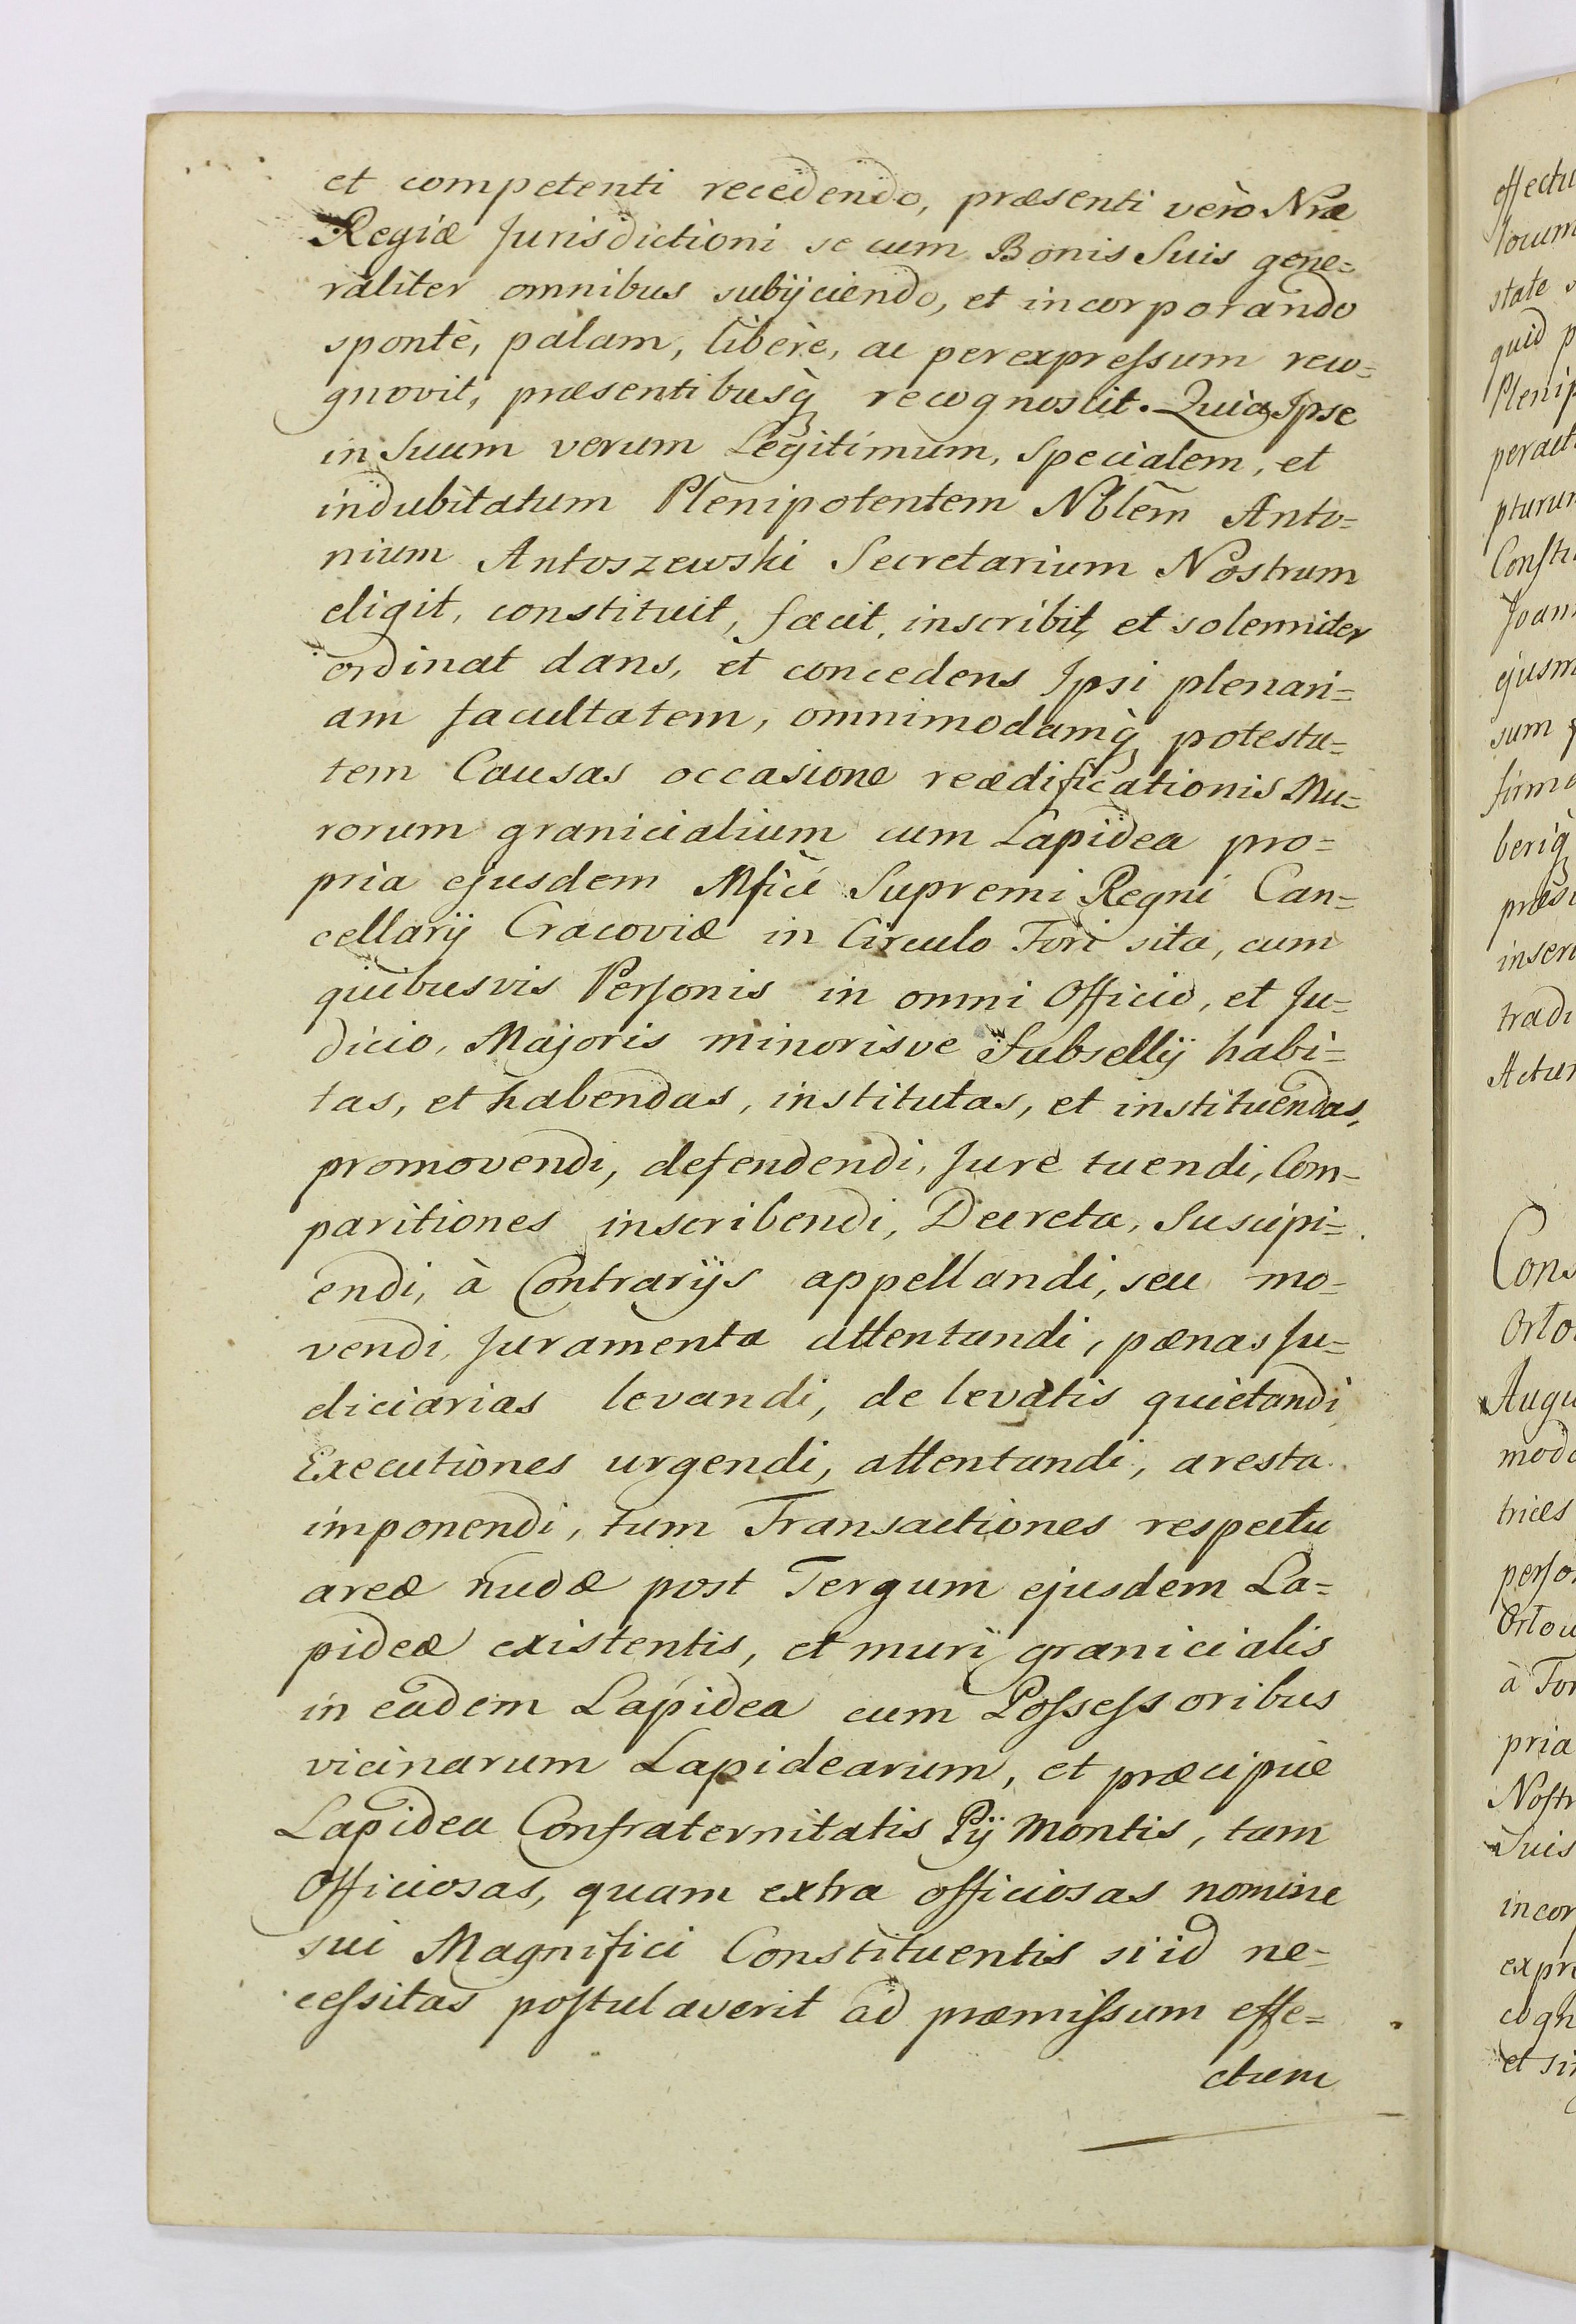 et competenti recedendo, præsenti verò Nræ
Regiæ Jurisdictioni se cum Bonis Suis gene=
raliter omnibus subijciendo, et incorporando
spontè, palam, liberè, ac per expreſsum reco=
gnovit, præsentibusq́ recognoscit. Quia Ipse
in Suum verum Legitimum, Specialem, et
indubitatum Plenipotentem Nblem̃ Anto=
nium Antoszewski Secretarium Nostrum
eligit, constituit, facit, inscribit, et solemniter
ordinat dans, et concedens Ipsi plenari=
am facultatem, omnimodamq́ potesta=
tem Causas occasione reædificationis Mu=
rorum granicialium cum Lapidea pro=
pria ejusdem Mfici Supremi Regni Can=
cellarij Cracoviæ in Circulo Fori sita, cum
quibusvis Perſonis in omni Officio, et Ju=
dicio, Majoris minorisve Subsellij habi=
tas, et habendas, institutas, et instituendas,
promovendi, defendendi, Jure tuendi, Com=
paritiones inscribendi, Decreta, Suscipi=
endi, à Contrarijs appellandi, seu mo=
vendi, Juramenta attentandi, pænas Ju=
diciarias levandi, de levatis quietandi,
Executiones urgendi, attentandi, aresta
imponendi, tum Transactiones respectu
areæ nudæ post Tergum ejusdem La=
pideæ existentis, et muri granicialis
in eadem Lapidea cum Poſseſsoribus
vicinarum Lapidearum, et præcipuè
Lapidea Confraternitatis Pij Montis, tam
Officiosas, quam extra officiosas nomine
sui Magnifici Constituentis si id ne=
ceſsitas poſtulaverit ad præmiſsum effe=
ctum
effectu
locum
state
quid p
Plenip
peract
pturum
Conſti
Joan
ejusm
sum
firma
beriq́
præs
inser
tradi
Actum
Cons
Orto
Augu
modo
trices
perſo
Ortou
à For
pria
Noſtr
Suis
incor
expre
cogn
et si